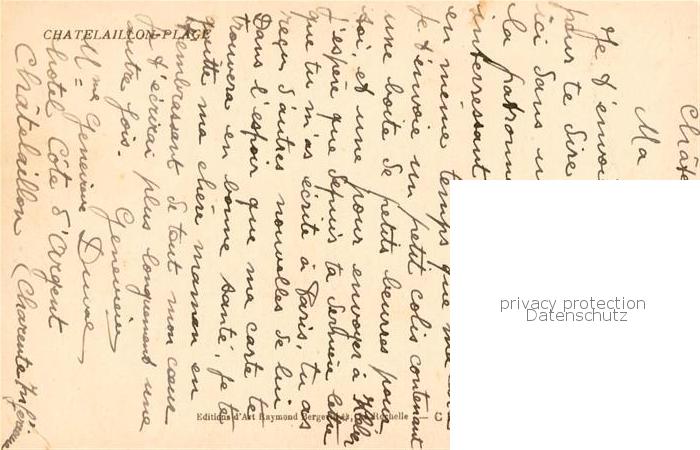 CHATELAILLON-PLAGE
Châte
Ma
Je t'envoi
pour te dire
ici dans u
la patronne
interressant
en même temps que ma
Je t'envoie un petit colis contenant
une boite de petits beurres pour
toi, et une pour envoyer à
J'espère que depuis ta dernière lettre
que tu m'as écrite à Paris, tu as
reçu d'autres nouvelles de lui
Dans l'espoir que ma carte te
trouvera en bonne santé, je te
quitte ma chère maman en
t'embrassant de tout mon cœur
Je t'écrirai plus longuement une
autre fois.
Geneviève
Mme Geneviève Duval
hotel Côte d'Argent
Châtelaillon (Charente Infre
Editions d'Art Raymond Bergevin, La Rochelle
privacy protection
Datenschutz